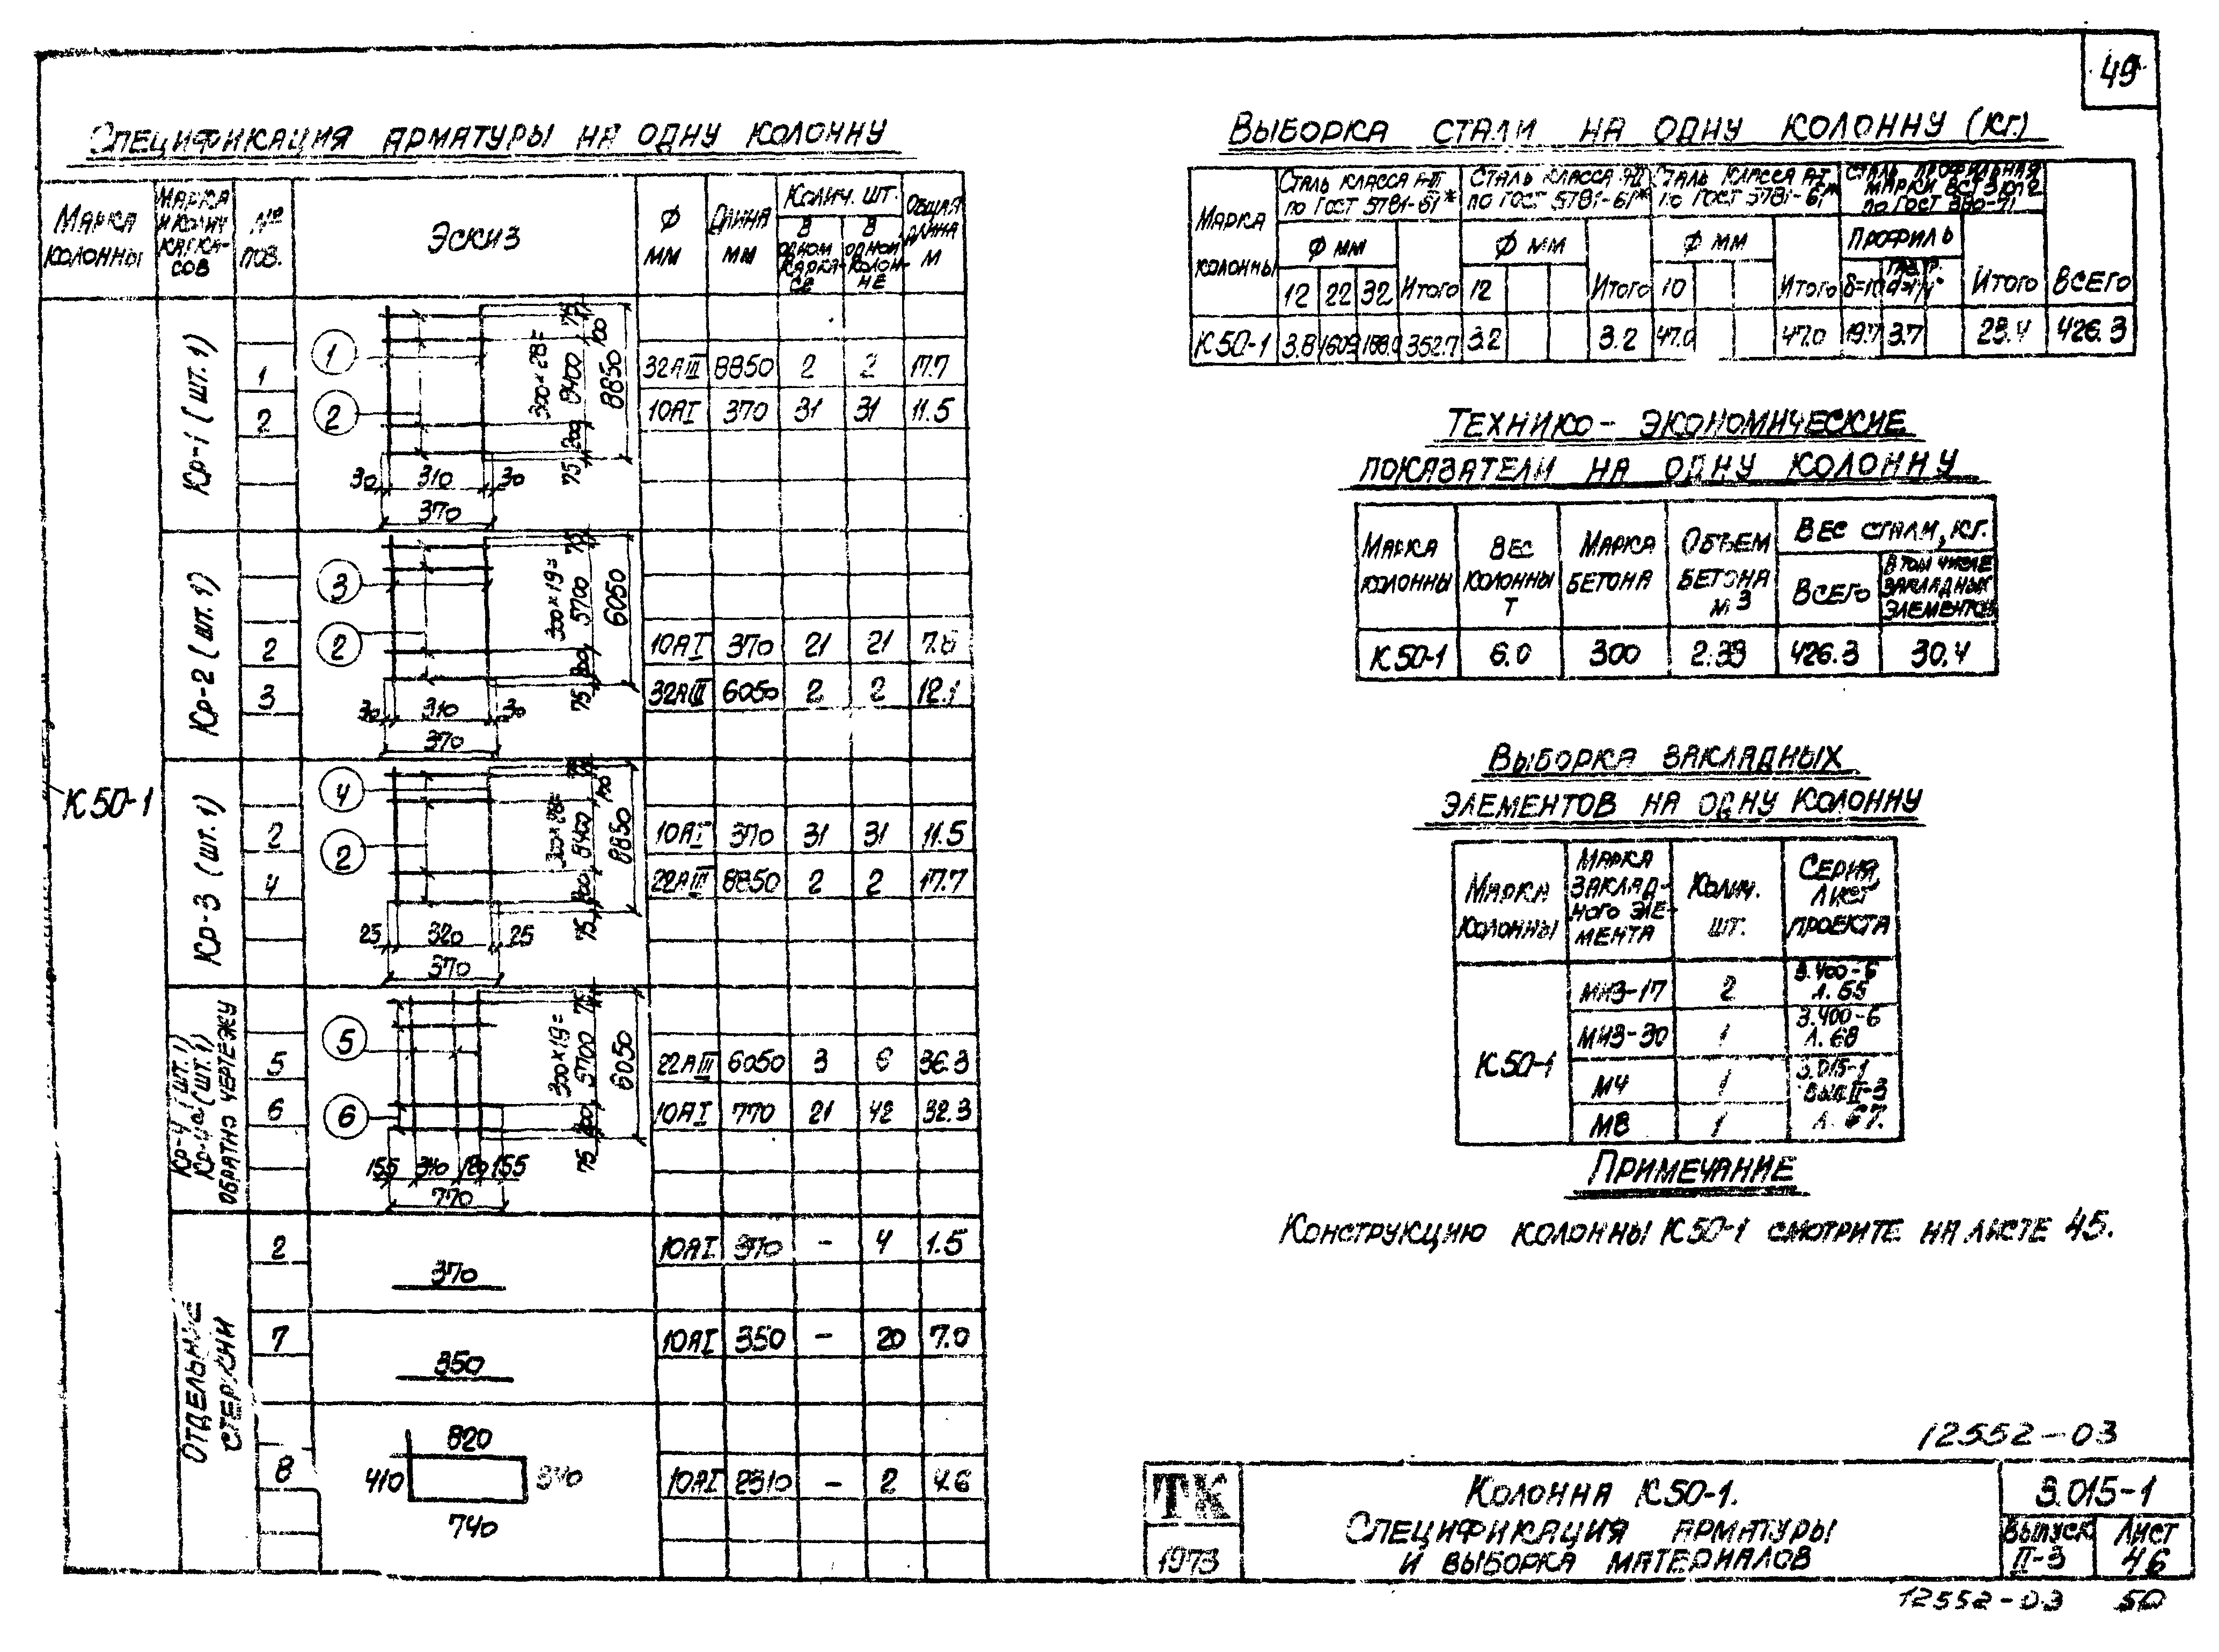 49
Спецификация арматуры на одну колонну
Марка колонны | Марка и колич каркасов | № поз. | Эскиз | Ф мм | Длина мм | Колич. шт. | в одном каркасе | в одной колонне | Общая длина м
К50-1
Кр-1 (шт. 1)
1 | 32АIII | 8850 | 2 | 2 | 17.7
2 | 10АI | 370 | 31 | 31 | 11.5
1 2
75 100 300×28= 8400 200 75 8850
30 310 30
370
Кр-2 (шт. 1)
2 | 10АI | 370 | 21 | 21 | 7.8
3 | 32АIII | 6050 | 2 | 2 | 12.1
3 2
75 300×19= 5700 200 75 6050
30 310 30
370
Кр-3 (шт. 1)
2 | 10АI | 370 | 31 | 31 | 11.5
4 | 22АIII | 8850 | 2 | 2 | 17.7
4 2
75 100 300×28= 8400 200 75 8850
25 320 25
370
Кр-4 (шт. 1)
Кр-4а (шт. 1)
обратно чертежу
5 | 22АIII | 6050 | 3 | 6 | 36.3
6 | 10АI | 770 | 21 | 42 | 32.3
5 6
75 300×19= 5700 200 75 6050
155 340 120 155
770
Отдельные стержни
2 | 370 | 10АI | 370 | - | 4 | 1.5
7 | 350 | 10АI | 350 | - | 20 | 7.0
8 | 820 410 340 740 | 10АI | 2310 | - | 2 | 4.6
Выборка стали на одну колонну (кг.)
Марка колонны | Сталь класса А-III по ГОСТ 5781-61* | Сталь класса А-II по ГОСТ 5781-61* | Сталь класса А-I по ГОСТ 5781-61* | Сталь профильная марки ВСт3кп2 по ГОСТ 380-71 | Всего
Ф мм | Ф мм | Ф мм | Профиль
12 | 22 | 32 | Итого | 12 | Итого | 10 | Итого | Итого
К50-1 | 3.8 | 160.9 | 188.0 | 352.7 | 3.2 | 3.2 | 47.0 | 47.0 | 19.7 | 3.7 | 23.4 | 426.3
Технико-экономические
показатели на одну колонну
Марка колонны | Вес колонны т | Марка бетона | Объем бетона м3 | Вес стали, кг. | Всего | в том числе закладных элементов
К50-1 | 6.0 | 300 | 2.39 | 426.3 | 30.4
Выборка закладных
элементов на одну колонну
Марка колонны | Марка закладного элемента | Колич. шт. | Серия, лист проекта
К50-1
МИЗ-17 | 2 | 3.400-6 л. 65
МИЗ-30 | 1 | 3.400-6 л. 68
М4 | 1 | 3.015-1 вып. II-3
М8 | 1 | л. 67.
Примечание
Конструкцию колонны К50-1 смотрите на листе 45.
12552-03
ТК
1973
Колонна К50-1.
Спецификация арматуры
и выборка материалов
3.015-1
Выпуск II-3
Лист 46
12552-03 50